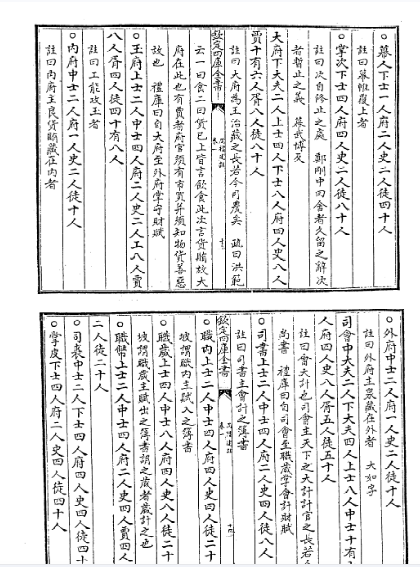 ○幕人下士一人府二人史二人徒四十人
註曰幕帷覆上者
○掌次下士四人府四人史二人徒八十人
註曰次自修止之處 鄭剛中曰舍者久留之辭次
者暫止之義 幕武博反
大府下大夫二人上士四人下士八人府四人史八人
賈十有六人胥八人徒八十人
註曰大府為王治藏之長若今司農矣 疏曰洪範
欽定四庫全書
云一曰食二曰貨已上皆言飲食此次言貨賄故大
府在此也有賈者府官須有市買并須知物貨善惡
故也 禮庫曰自大府至外府掌守財賦
○玉府上士二人中士四人府二人史二人工八人賈
八人胥四人徒四十有八人
註曰工能攻玉者
○内府中士二人府一人史二人徒十人
註曰内府主良貨賄藏在内者
○外府中士二人府一人史二人徒十人
註曰外府主泉藏在外者 大如字
司會中大夫二人下大夫四人上士八人中士十有
人府四人史八人胥五人徒五十人
註曰會大計也司會主天下之大計計官之長若
尚書 禮庫曰自司會至職歲掌會計財賦
○司書上士二人中士四人府二人史四人徒八人
註曰司書主會計之簿書
欽定四庫全書
○職内上士二人中士四人府四人史四人徒二十
故謂職内主賦入之簿書
○職歲上士四人中士八人府四人史八人徒二十
故謂職歲主賦出之簿書謂之歲者歲計之也
○職幣上士二人中士四人府二人史四人賈四人
二人徒二十人
○司裘中士二人下士四人府二人史四人徒四十
○掌皮下士四人府二人史四人徒四十人